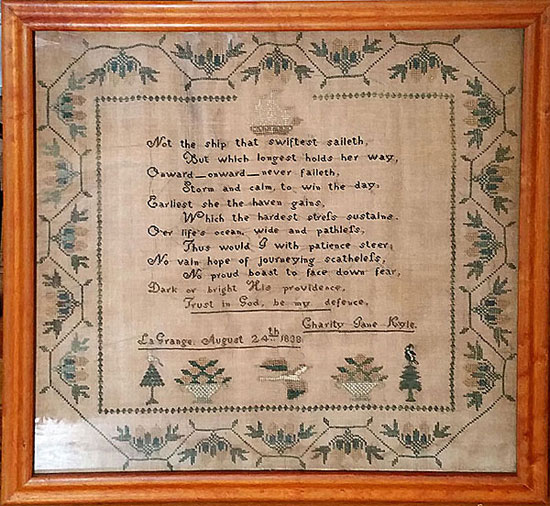 Not the ship that swiftest saileth,
But which longest holds her way,
Onward—onward—never faileth,
Storm and calm, to win the day;
Earliest she the haven gains,
Which the hardest strefs sustains.
O'er life's ocean, wide and pathlefs,
Thus would I with patience steer;
No vain hope of journeying scathelefs,
No proud boast to face down fear,
Dark or bright His providence,
Trust in God, be my defence,
Charity Jane Kyle.
LaGrange. August 24th. 1838